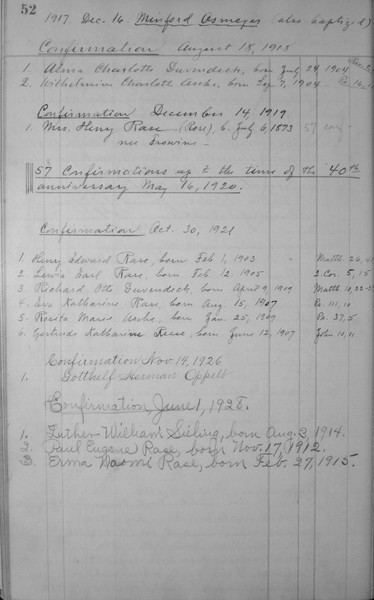 52
1917. Dec. 16. Minford Osmeyer (also baptized)
Confirmation August 18, 1918
1. Alma Charlotte Duvendeck, born July 24, 1904
2. Wilhelmine Charlotte Aschs, born Sep. 7, 1904.
Confirmation December 14, 1919
1. Mrs. Henry Rase (Rose), b. July 6, 1873 57 con
nee Frowine
57 Confirmations up to the time of the 40th
anniversary May 16, 1920.
Confirmation Oct. 30, 1921
1. Henry Edward Rase, born Feb 1, 1903 Matth. 26, 41
2. Lewis Earl Rase, born Feb. 12, 1905 2 Cor. 5, 15
3. Richard Otto Duvendeck, born April 9, 1909 Matth 10, 32-
4. Eva Katharine Rase, born Aug. 15, 1907 Ps. 111, 10
5. Rosita Marie, born Jan. 25, 1909 Ps. 37, 5
6. Gertrude Katharine Reese, born June 12, 1907 John 10, 11
Confirmation Nov 14, 1926
1. Gotthelf Herman Oppelt
Confirmation June 1, 1928.
1. Luther William Sieling, born Aug. 3, 1914.
2. Paul Eugene Rase, born Nov. 17, 1912.
3. Erma Naomi Rase, born Feb. 27, 1915.